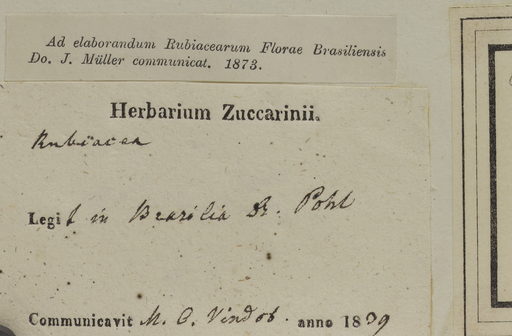 Ad elaborandum Rubiacearum Florae Brasiliensis
Do. J. Müller communicat. 1873.
Herbarium Zuccarinii.
Rubiacea
Legit in Brasilia Dr. Pohl
Communicavit M. C. Vindob. anno 1839